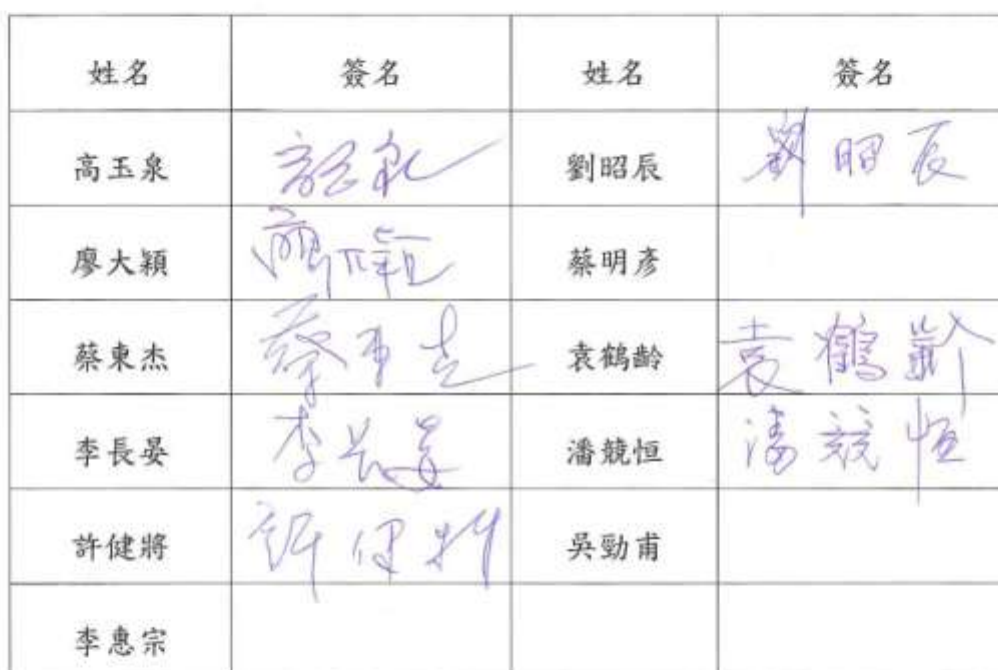 姓名 簽名 姓名 簽名
高玉泉 劉昭辰 劉昭辰
廖大穎 蔡明彥
蔡東杰 蔡東杰 袁鶴齡 袁鶴齡
李長晏 李長晏 潘競恒 潘競恒
許健將 許健將 吳勁甫
李惠宗